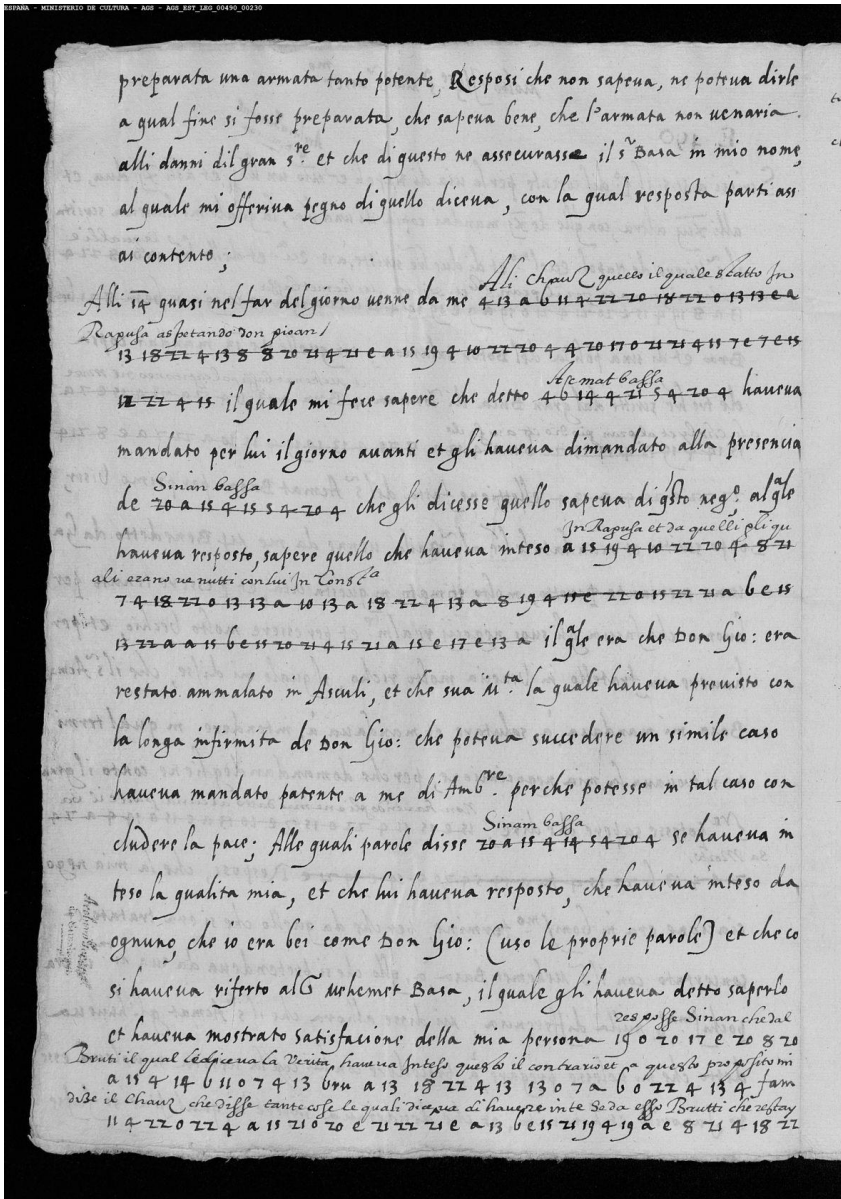 ESPAÑA - MINISTERIO DE CULTURA - AGS - AGS_EST_LEG_00490_00230
preparata una armata tanto potente, Resposi che non sapeva, ne poteva dirle
a qual fine si fosse preparata, che sapeva bene, che l'armata non venaria
alli danni dil gran s.re et che di questo ne assecurasse il s.r Basa in mio nome,
al quale mi offeriva pegno di quello diceva, con la qual resposta parti ass
ai contento;
Ali Chauz quello il quale statto In
Alli 14 quasi nel far del giorno venne da me 4 13 a 6 11 4 22 20 18 22 0 13 13 e a
Rapusa aspetando don pioan/
13 18 22 4 13 8 8 20 21 4 21 e a 15 19 4 10 22 20 4 4 20 17 0 21 21 4 15 7 e 7 e 15
12 22 4 15 il quale mi fece sapere che detto 4 6 14 4 21 5 4 20 4 haveva
Acmat bassa
mandato per lui il giorno avanti et gli haveva dimandato alla presencia
Sinan bassa
de 20 a 15 4 15 5 4 20 4 che gli dicesse quello sapeva di qsto neg.o al qle
In Rapusa et da quelli pli qu
haveva resposto, sapere quello che haveva inteso a 15 19 4 10 22 20 4 8 21
ali erano ve nutti con lui In Const.a
7 4 18 22 0 13 13 a 10 13 a 18 22 4 13 a 8 19 4 15 e 22 0 15 22 21 a 6 e 15
13 22 a a 15 6 e 15 20 21 4 15 21 a 15 e 17 e 13 a il qle era che Don Gio: era
restato ammalato in Asculi, et che sua M.ta la quale haveva previsto con
la longa infirmita de Don Gio: che poteva succedere un simile caso
haveva mandato patente a me di Amb.re perche potesse in tal caso con
Sinam bassa
cludere la pace; Alle quali parole disse 20 a 15 4 14 5 4 20 4 se haveva in
teso la qualita mia, et che lui haveva resposto, che haveva inteso da
ognuno, che io era bei come Don Gio: (uso le proprie parole) et che co
si haveva riferto al G Mehemet Basa, il quale gli haveva detto saperlo
resposse Sinan che dal
et haveva mostrato satisfacione della mia persona 19 0 20 17 e 20 8 20
Bruti il qual le diceva la verita haveva Inteso questo il contrario et a questo proposito mi
a 15 4 14 6 11 0 7 4 13 bru a 13 18 22 4 13 13 0 7 a 6 0 22 4 13 4 fam
dise il Chauz che disse tante cose le quali diceva di havere inteso da esso Brutti che restay
11 4 22 0 22 4 a 15 21 0 20 e 21 22 21 e a 13 6 e 15 21 19 4 19 a e 8 21 4 18 22